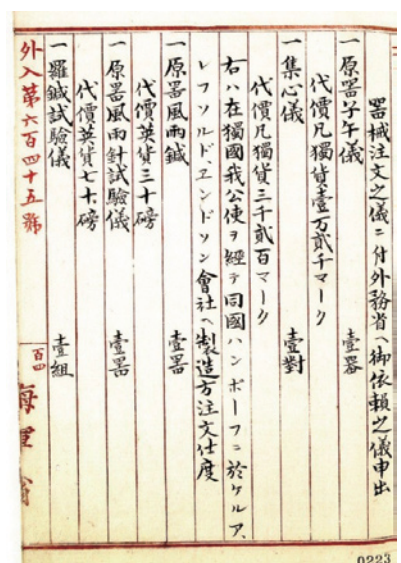 器械注文之儀ニ付外務省ヘ御依頼之儀申出
一原器子午儀 壹器
代價凡獨貨壹万貳千マーク
一集心儀 壹對
代價凡獨貨三千貳百マーク
右ハ在獨國我公使ヲ經テ同國ハンボーフニ於ケルア、
レフソルドエンドソン會社ヘ製造方注文仕度
一原器風雨鍼 壹器
代價英貨三十磅
一原器風雨針試驗儀 壹器
代價英貨七十磅
一羅鍼試驗儀 壹組
外入第六百四十五號
百四
海軍省
0223